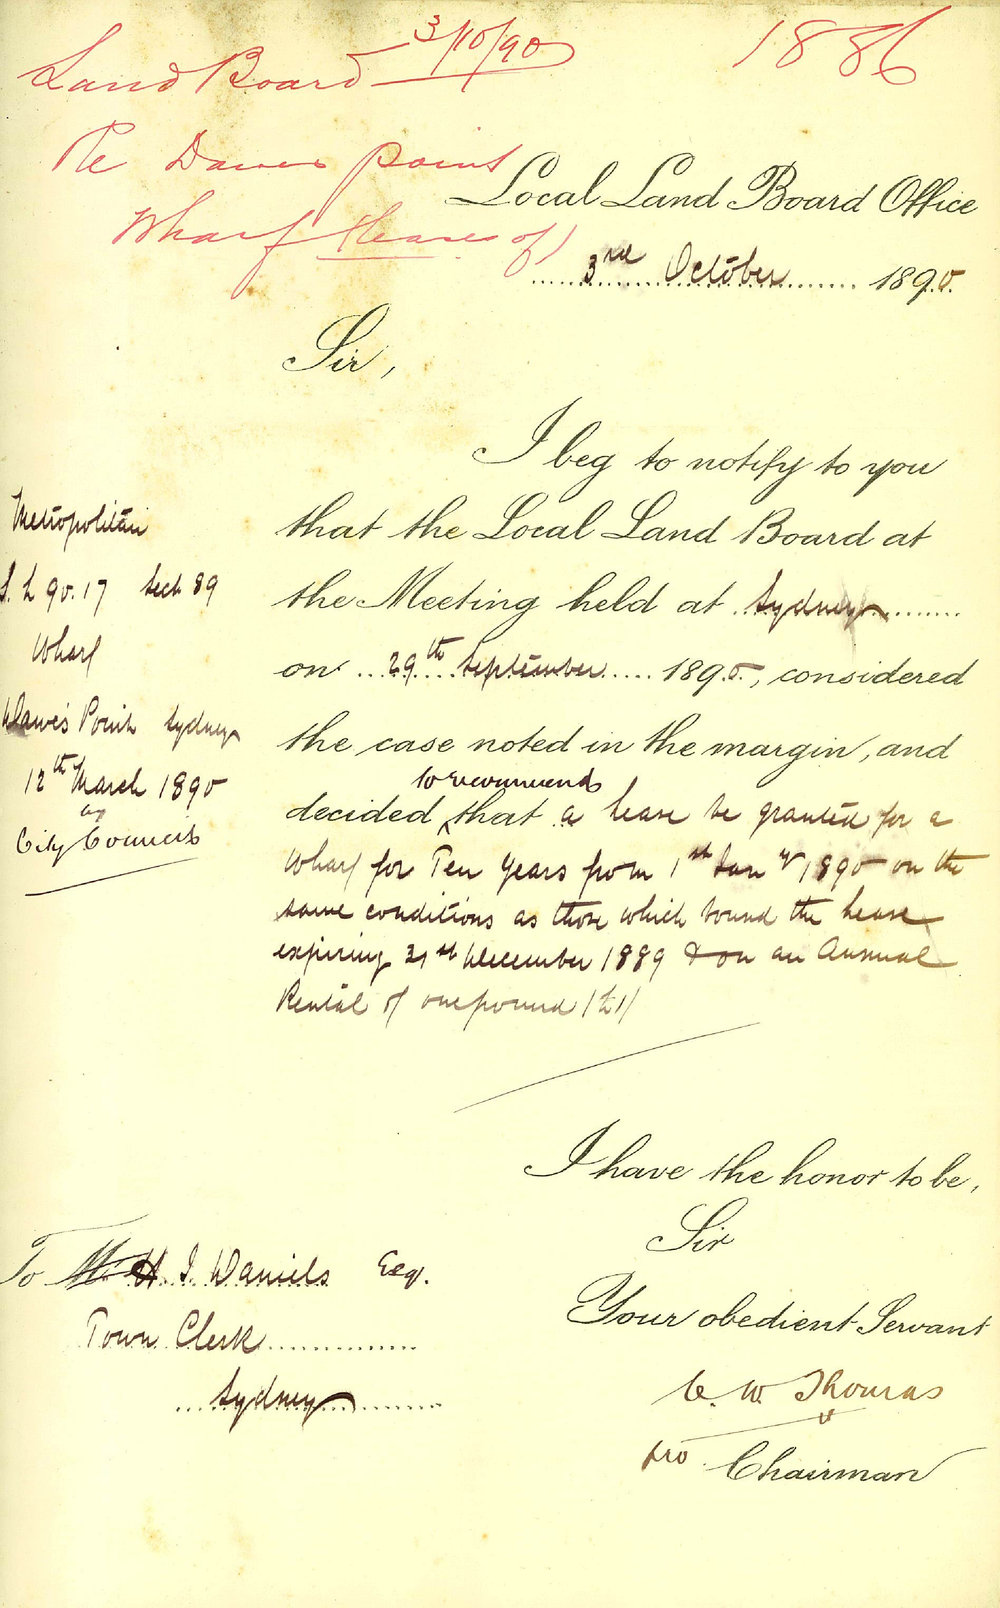 Land Board 3/10/90
1886
Re Dawes Point
Wharf (Lease of)
Local Land Board Office
3rd October 1890.
Sir,
I beg to notify to you
that the Local Land Board at
the Meeting held at Sydney
on 29th September 1890, considered
the case noted in the margin, and
to recommend
decided ^ that a lease be granted for a
Wharf for Ten Years from 1st Jany 1890 on the
same conditions as those which bound the lease
expiring 31st December 1889 & on an Annual
Rental of one pound
Metropolitan
L 90.17 Sect 89
Wharf
Dawe's Point Sydney
12th March 1890
by
City Council
I have the honor to be,
Sir
Your obedient Servant
C. W. Thomas
pro Chairman
To H. J. Daniels Esq.
Town Clerk
Sydney